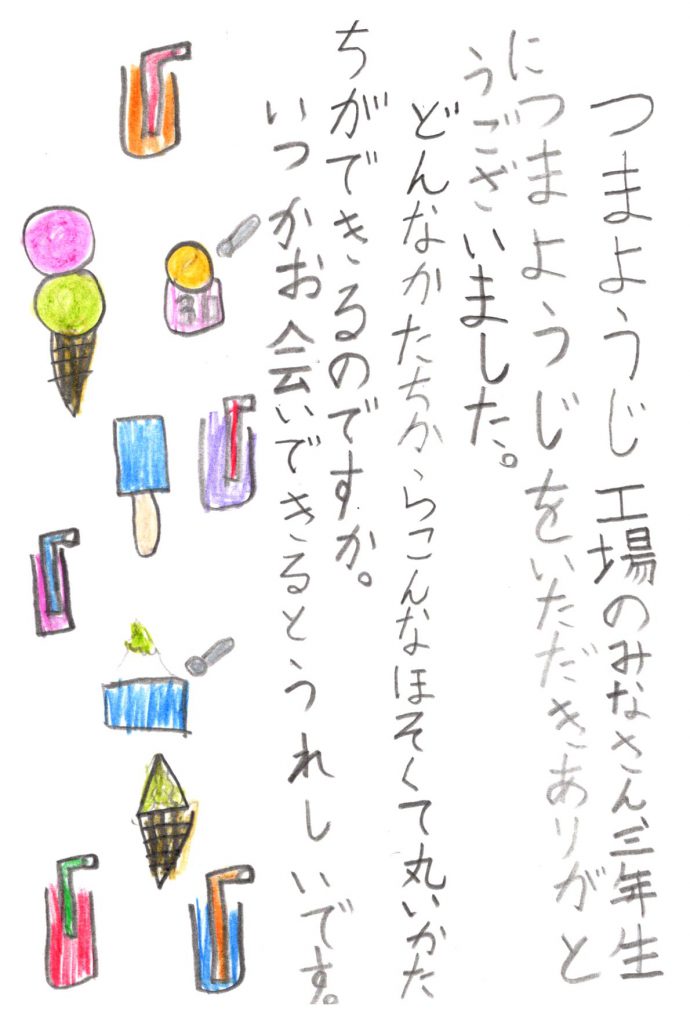 つまようじ工場のみなさん、三年生
につまようじをいただきありがと
うございました。
どんなかたちからこんなほそくて丸いかた
ちができるのですか。
いつかお会いできるとうれしいです。